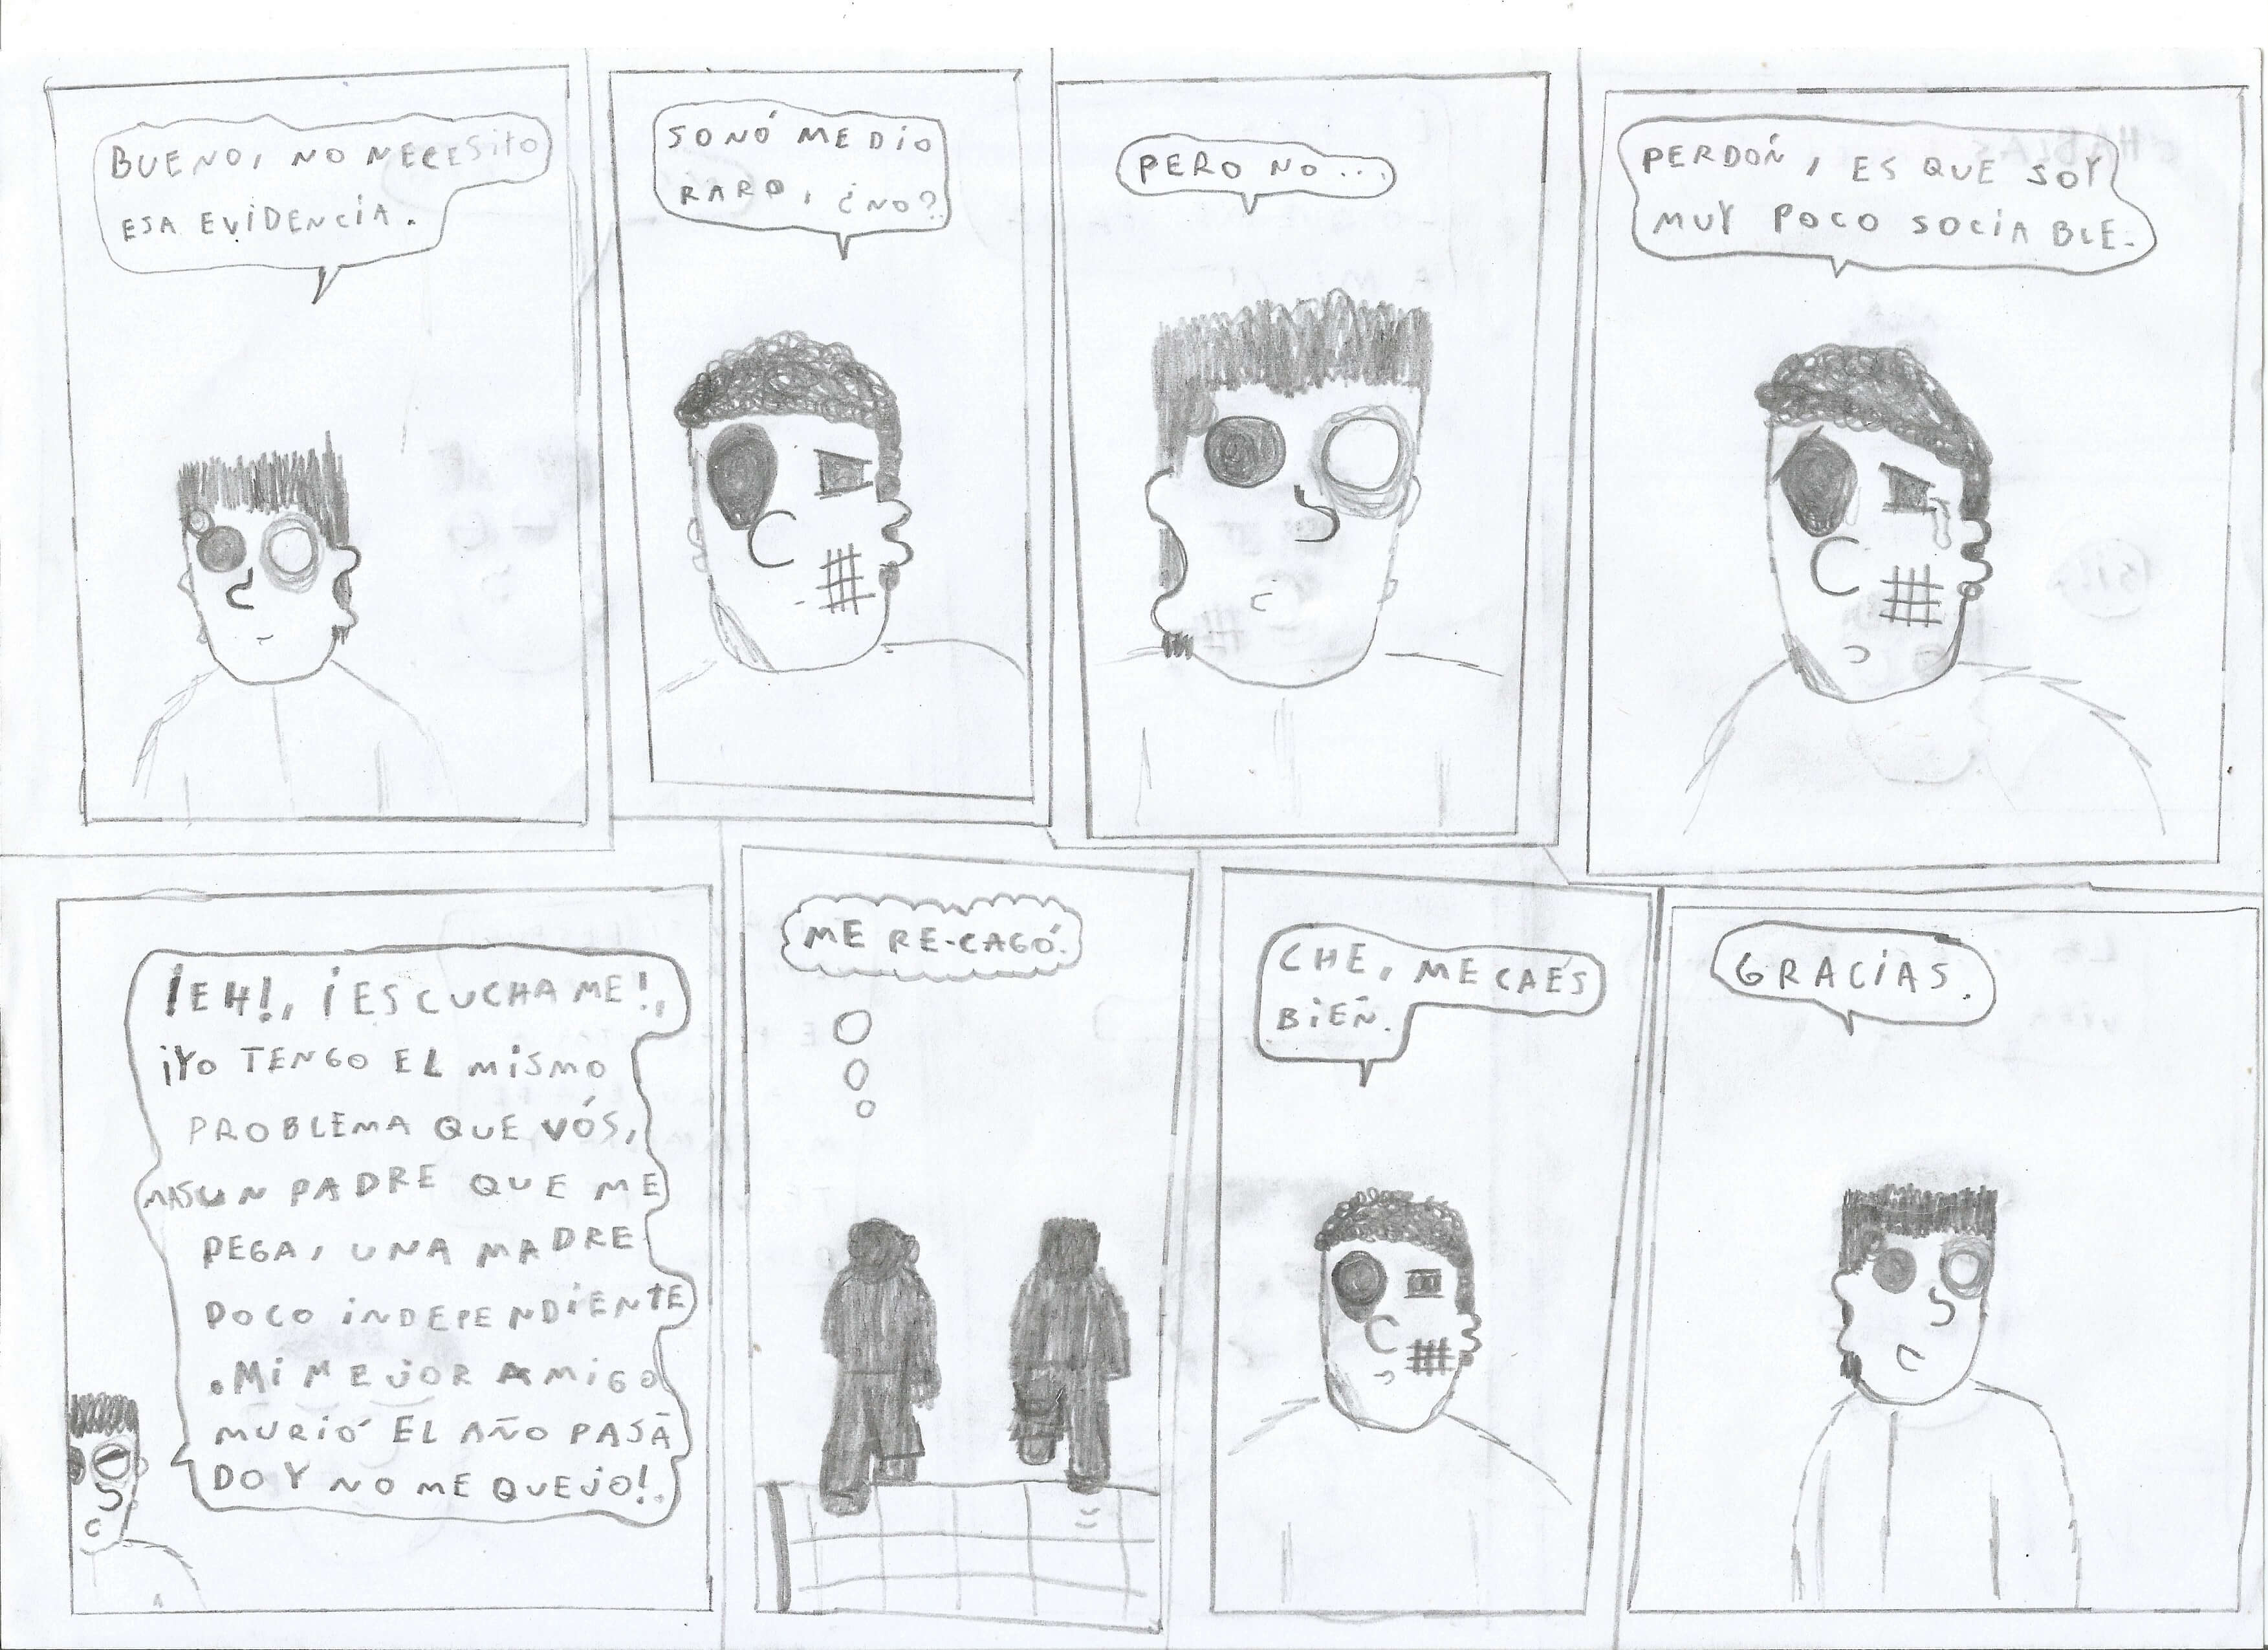 BUENO, NO NECESITO
ESA EVIDENCIA.
SONÓ MEDIO
RARO, ¿NO?
PERO NO...
PERDOÑ, ES QUE SOY
MUY POCO SOCIABLE.
¡EH!, ¡ESCUCHAME!,
¡YO TENGO EL MISMO
PROBLEMA QUE VÓS,
MAS UN PADRE QUE ME
PEGA, UNA MADRE
POCO INDEPENDIENTE
. MI MEJOR AMIGO
MURIÓ EL AÑO PASA
DO Y NO ME QUEJO!.
ME RE-CAGÓ.
CHE, ME CAÉS
BIEÑ.
GRACIAS.